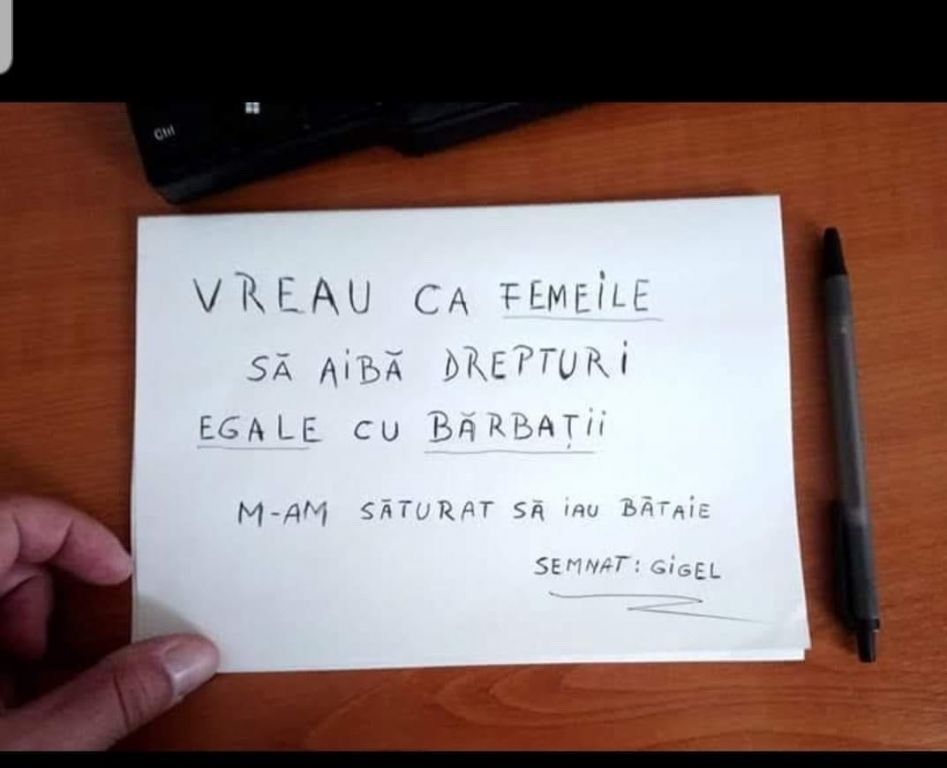 Ctrl
VREAU CA FEMEiLE
SĂ AiBĂ DREPTURi
EGALE CU BĂRBAȚii
M-AM SĂTURAT SĂ iAU BĂTAiE
SEMNAT: GiGEL